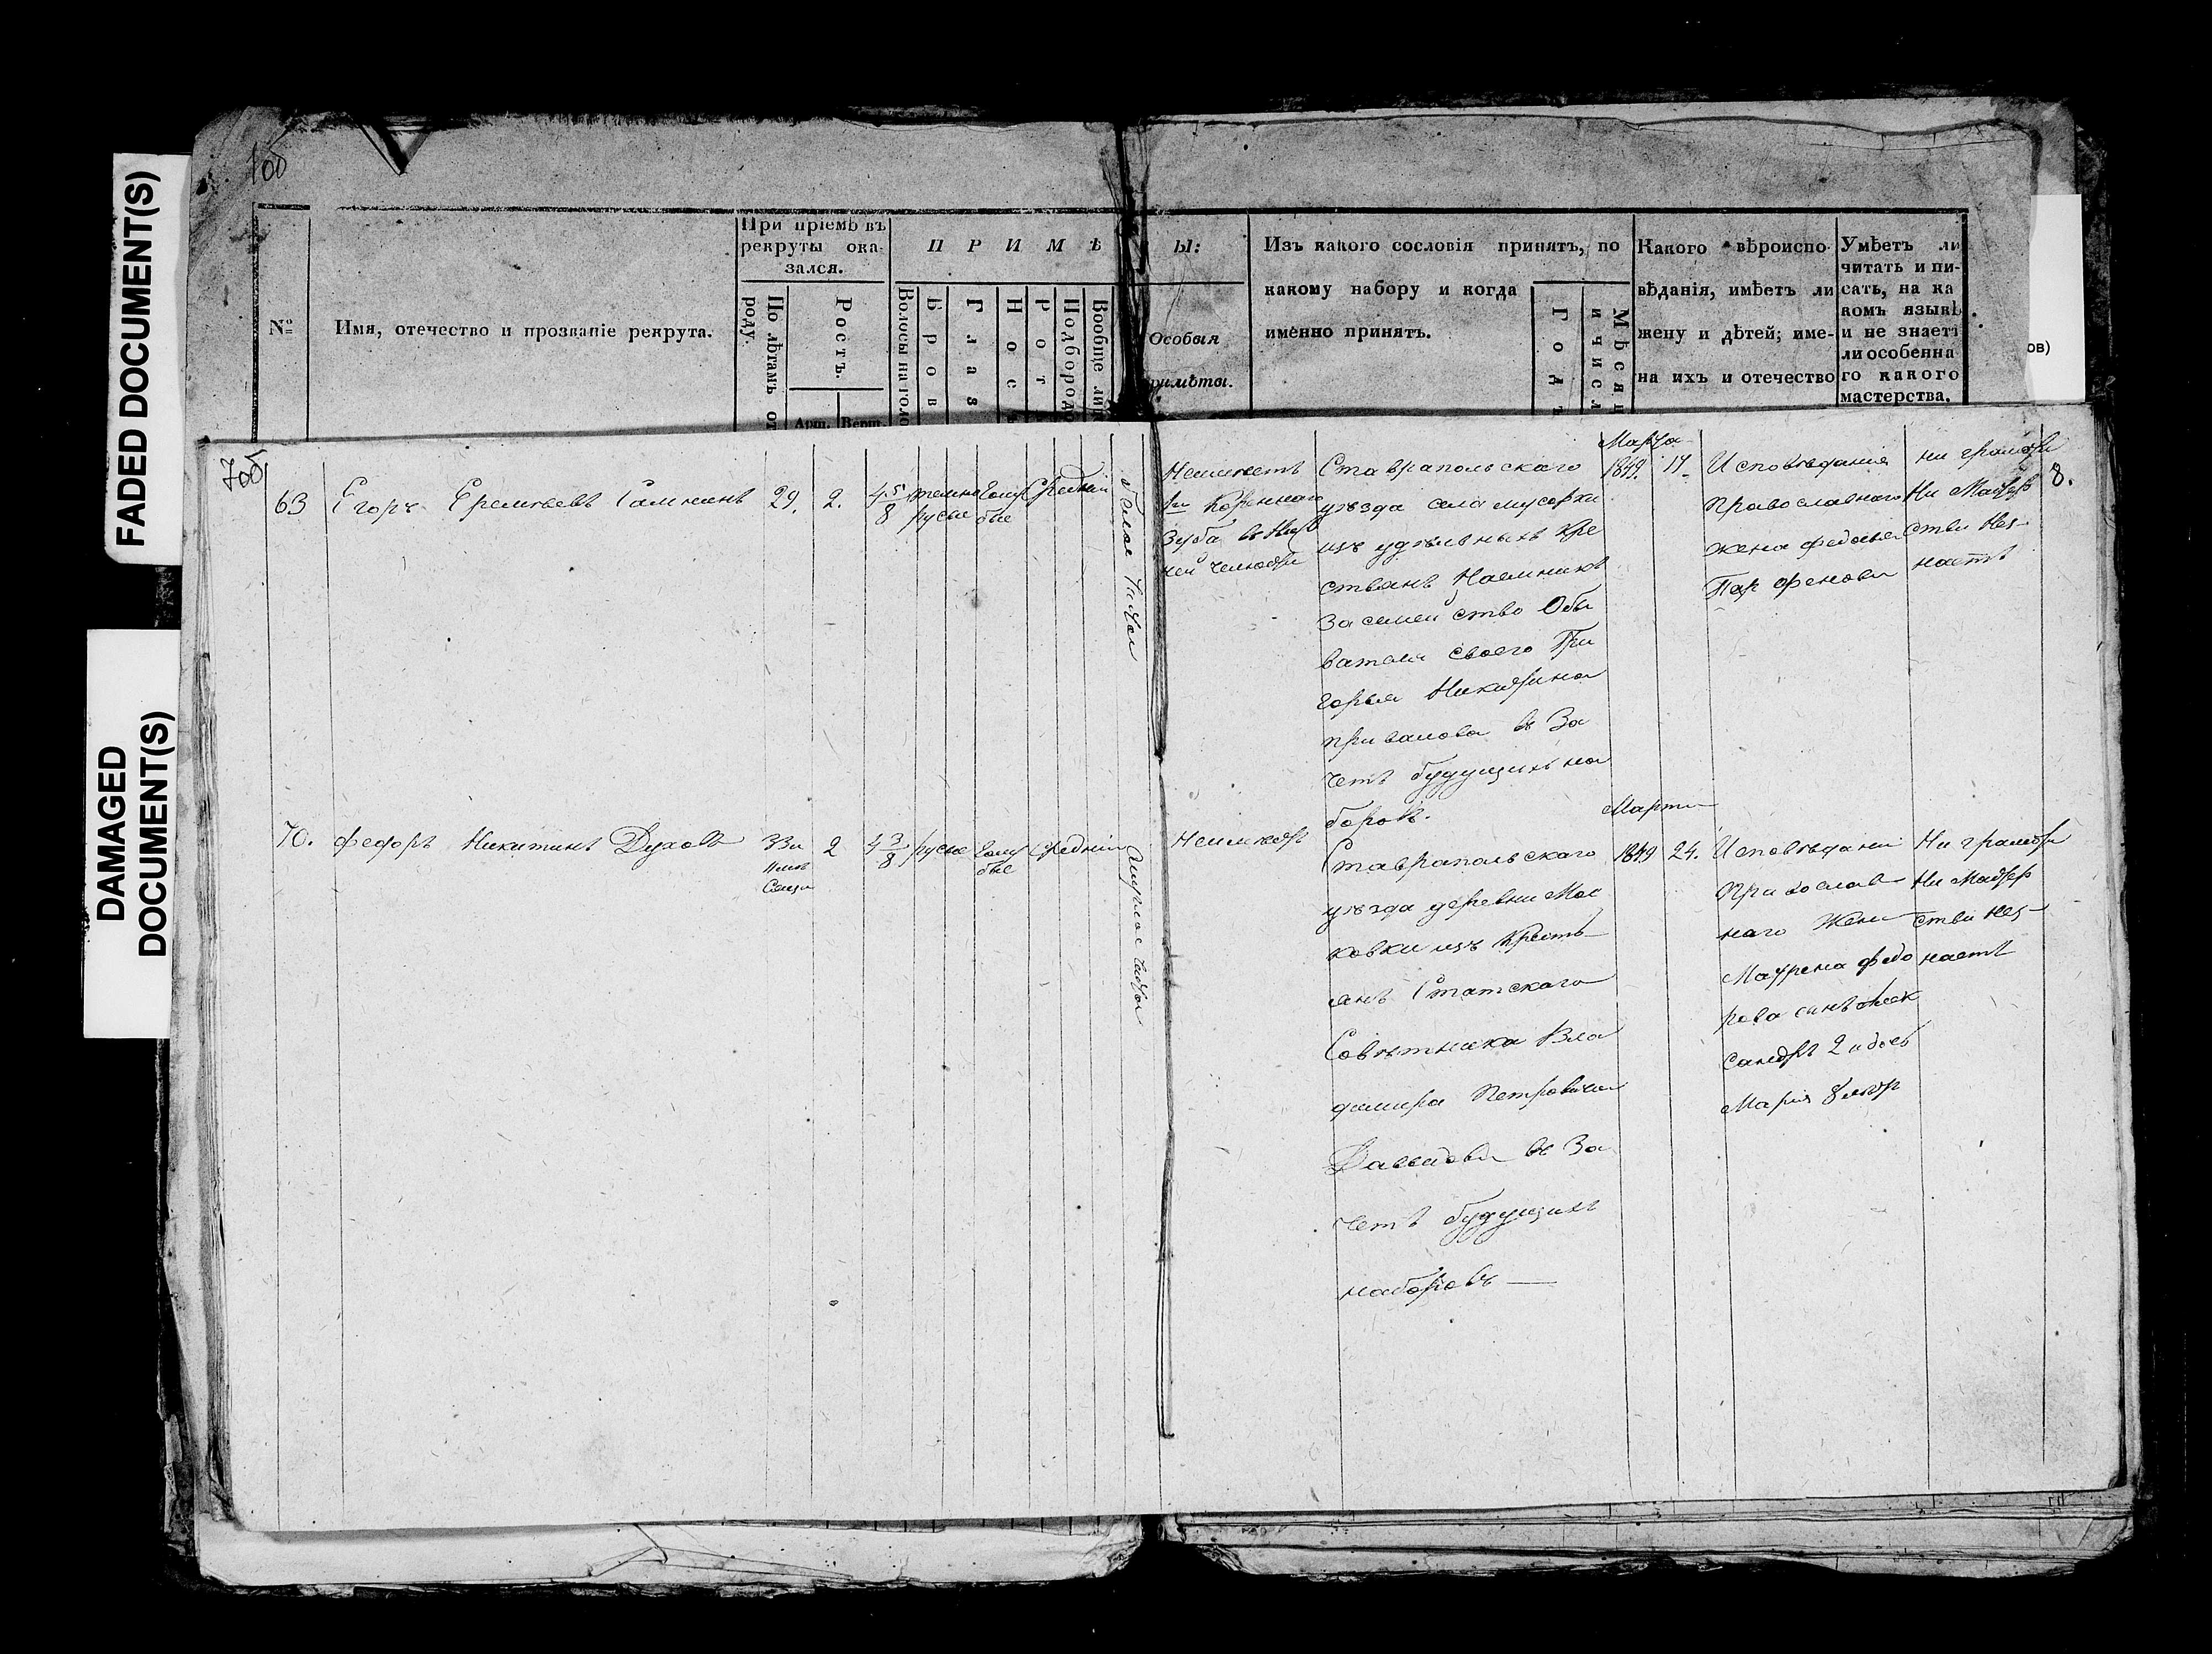 FADED DOCUMENT(S)
DAMAGED
DOCUMENT(S)
№
Имя, отечество и прозваніе рекрута.
При пріемѣ въ
рекруты ока-
зался.
По лѣтамъ от
роду.
Ростъ.
Арш.
Верш.
ПРИМѢ
Волосы на голо
Бров
Глаз
Носъ
Ротъ
Подбородо
Вообще ли
Ы:
Особыя
римѣты.
Изъ какого сословія принятъ, по
какому набору и когда
именно принятъ.
Годъ
Мѣсяц
и числ
Какого вѣроиспо-
вѣданія, имѣетъ ли
жену и дѣтей; име-
на ихъ и отечество
Умѣетъ ли
читать и пи-
сать, на ка
комъ языкѣ
и не знаетъ
ли особенна
го какого
мастерства.
ов)
8.
63
Егоръ Еремѣевъ
29.
2.
4 5/8
темно
русые
Голу
бые
Средній
Белое чистое
Неимѣетъ
1го Кореннаго
Зуба в Ниж
ней челюсти
Ставрапольскаго
уѣзда села мусорки
изъ удѣльныхъ Кре
стьянъ Наемникъ
За семейство Обы
вателя своего Гри
горья Никитина
привалова в За
четъ будущихъ на
боровъ.
Марта
1849. 17
Исповѣдания
Православнаго
жена федосья
Парфенова
ни грамоты
Ни Мастер
ства Нез-
наетъ
70.
федоръ Никитинъ Духовъ
2
4 3/8
русые
Голу
бые
средній
Неимѣетъ
Ставрапольскаго
уѣзда деревни Мос
ковки изъ Кресть-
янъ Статскаго
Совѣтника Вла
димира Петровича
Давыдова въ За
четъ будущихъ
наборовъ —
Марта
1849 24.
Исповѣдани
Православ
наго Жена
Маурена федо
рова сынъ Алек
сандръ 2 и дочь
Марія 8 лѣтъ
Ни грамоты
Ни Мастер
ства Нез-
наетъ